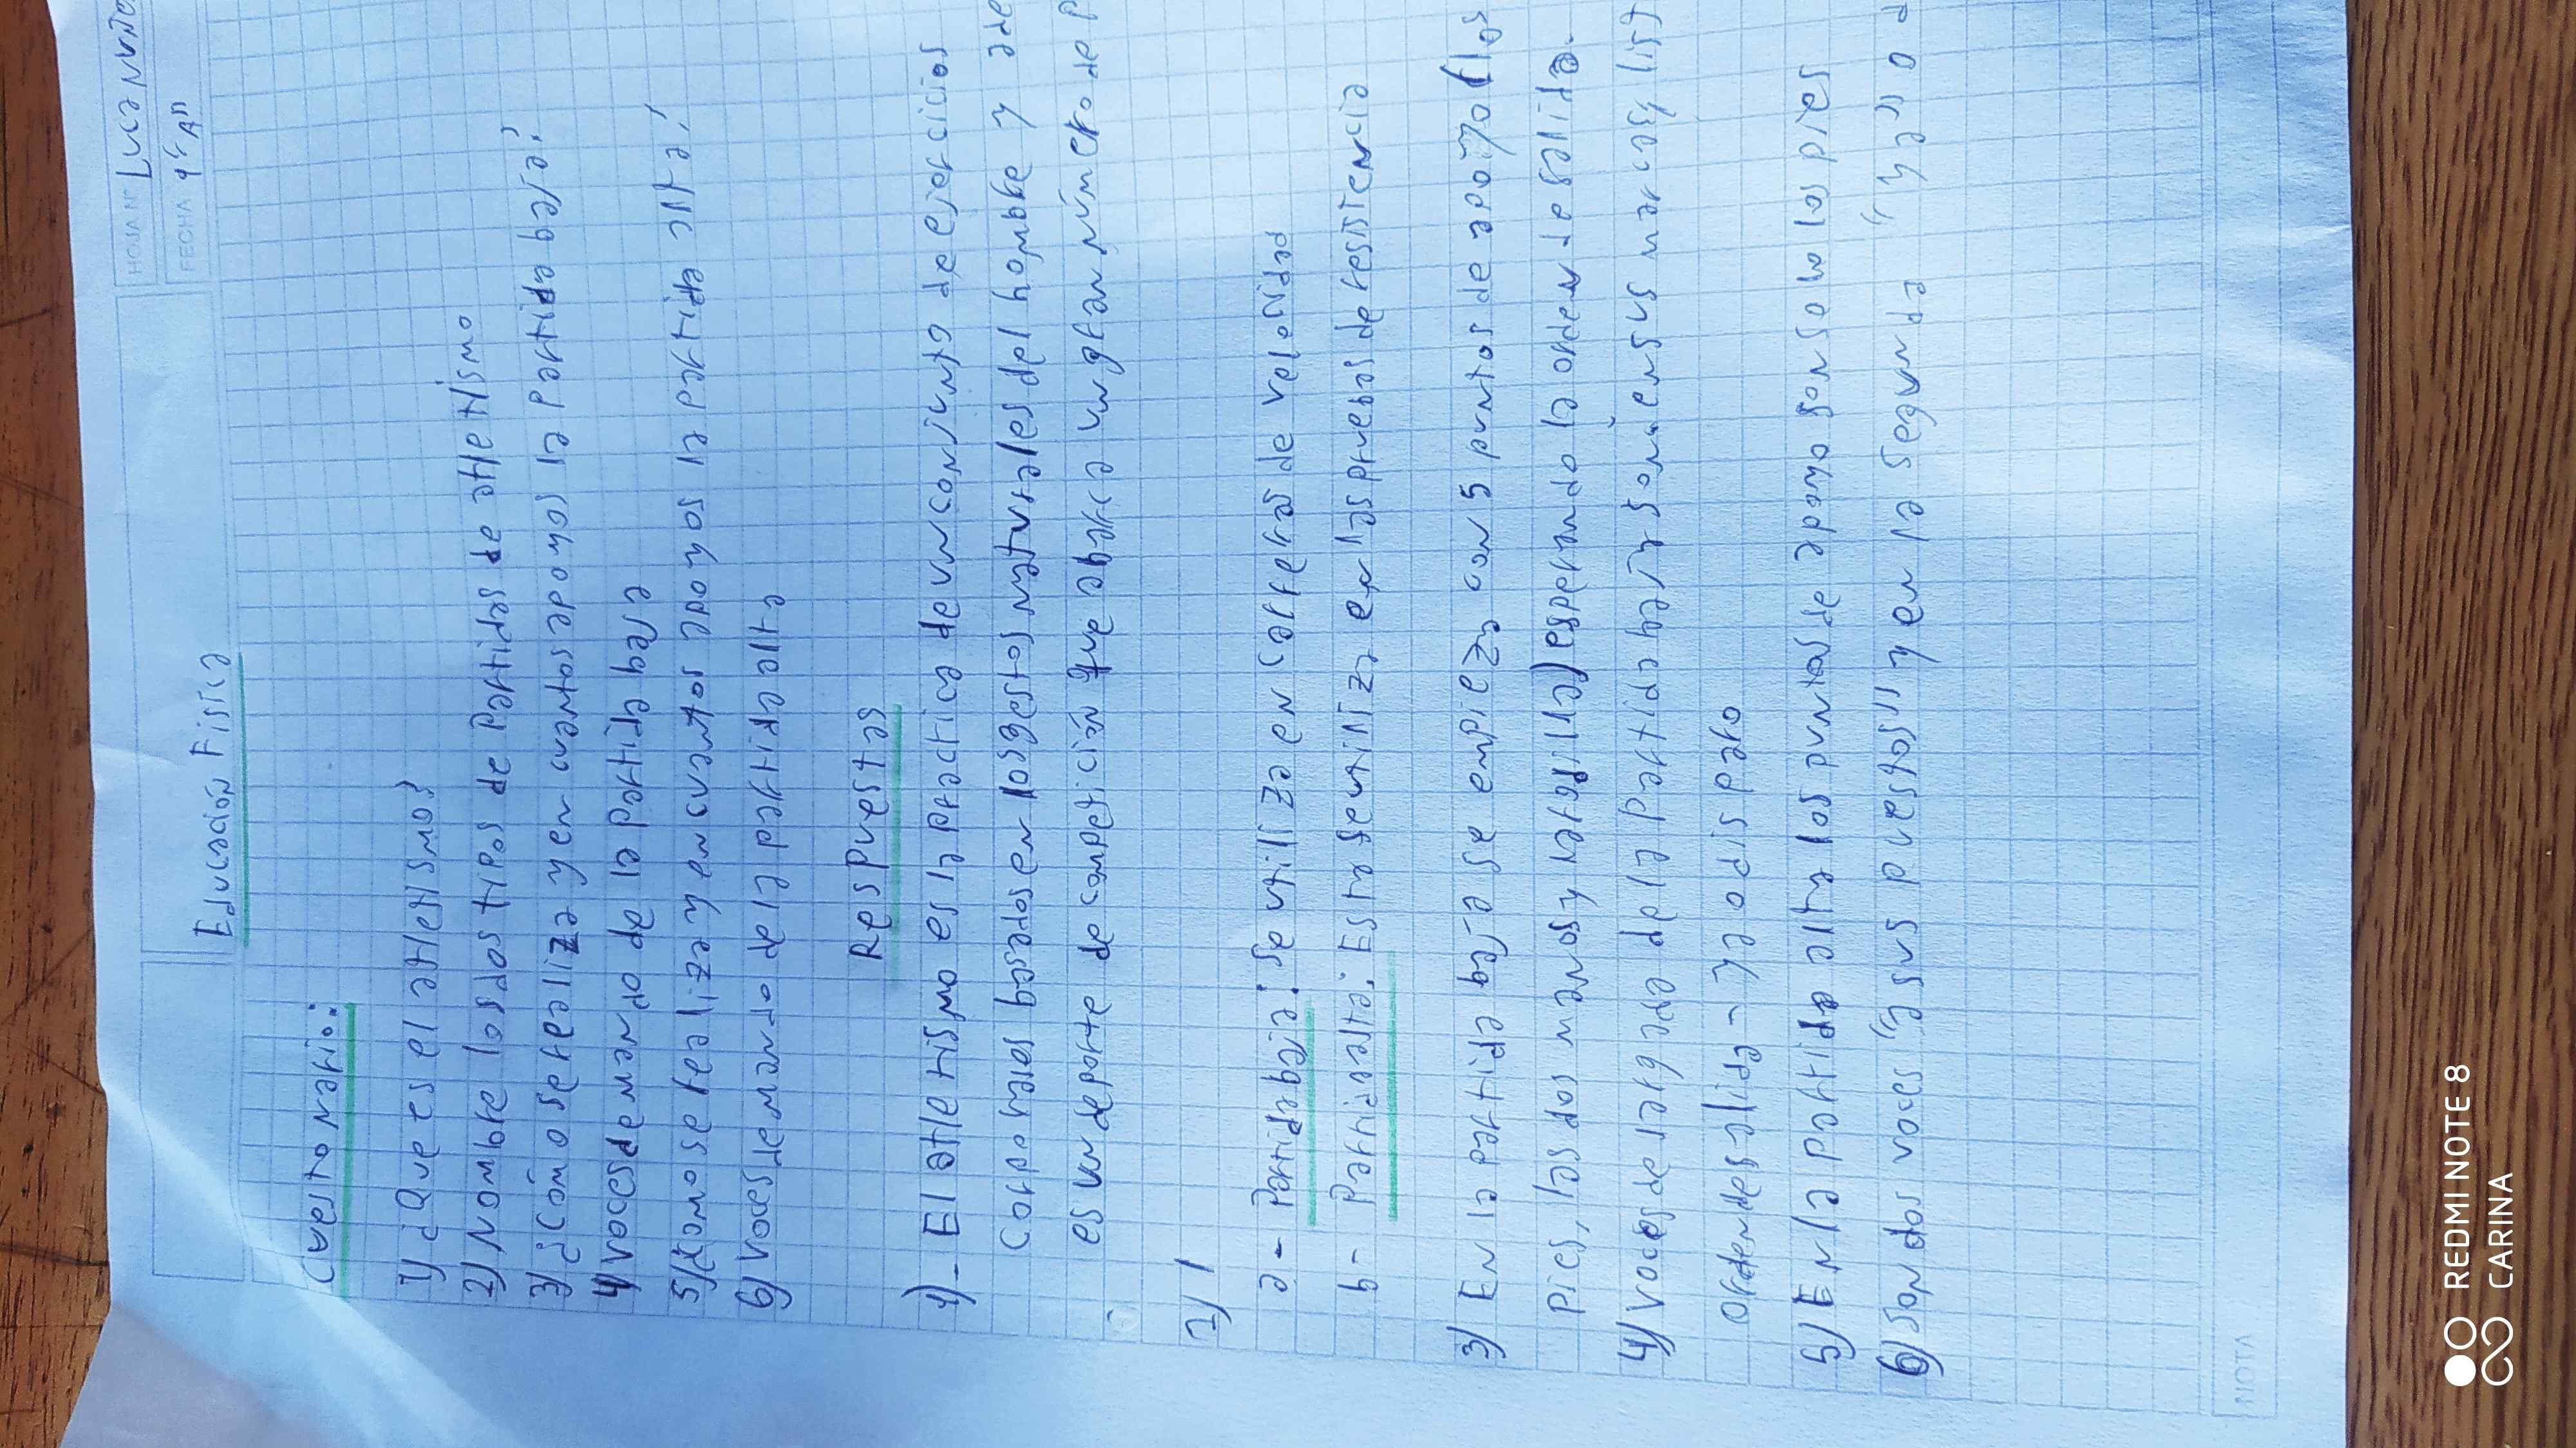 HOJA Nº Luca
FECHA 1º "A"
Educación Física
Cuestonario:
1) ¿Que es el atletismo?
2) Nombre los dos tipos de Partidas de atletismo
3) ¿Cómo se realiza y en cuantos apoyos la partida baja?
4) voces de mando de la partida baja
5) ¿Como se realiza y en cuantos apoyos la partida alta?
6) voces de mando de la partida alta
Respuestas
1)- El atletismo es la practica de un conjunto de ejercicios
corporales basados en los gestos natural es del hombre y
es un deporte de competición que abarca un gran número de p
2)
a- Partida baja: se utiliza en carreras de velocidad
b- Partida alta: Esta se utiliza en las pruebas de resistencia
3) En la partida baja se empieza con 5 puntos de apoyo (los
pies, las dos manos y la rodilla) esperando la orden de salida.
4) voces de largada de la partida baja son: en sus marcas,
orden de salida - ya o disparo
5) En la partida alta los puntos de apoyo son solo los pies
6) son dos voces "a sus puestos" y en la segunda "ya" o
NOTA
REDMI NOTE 8
CARINA